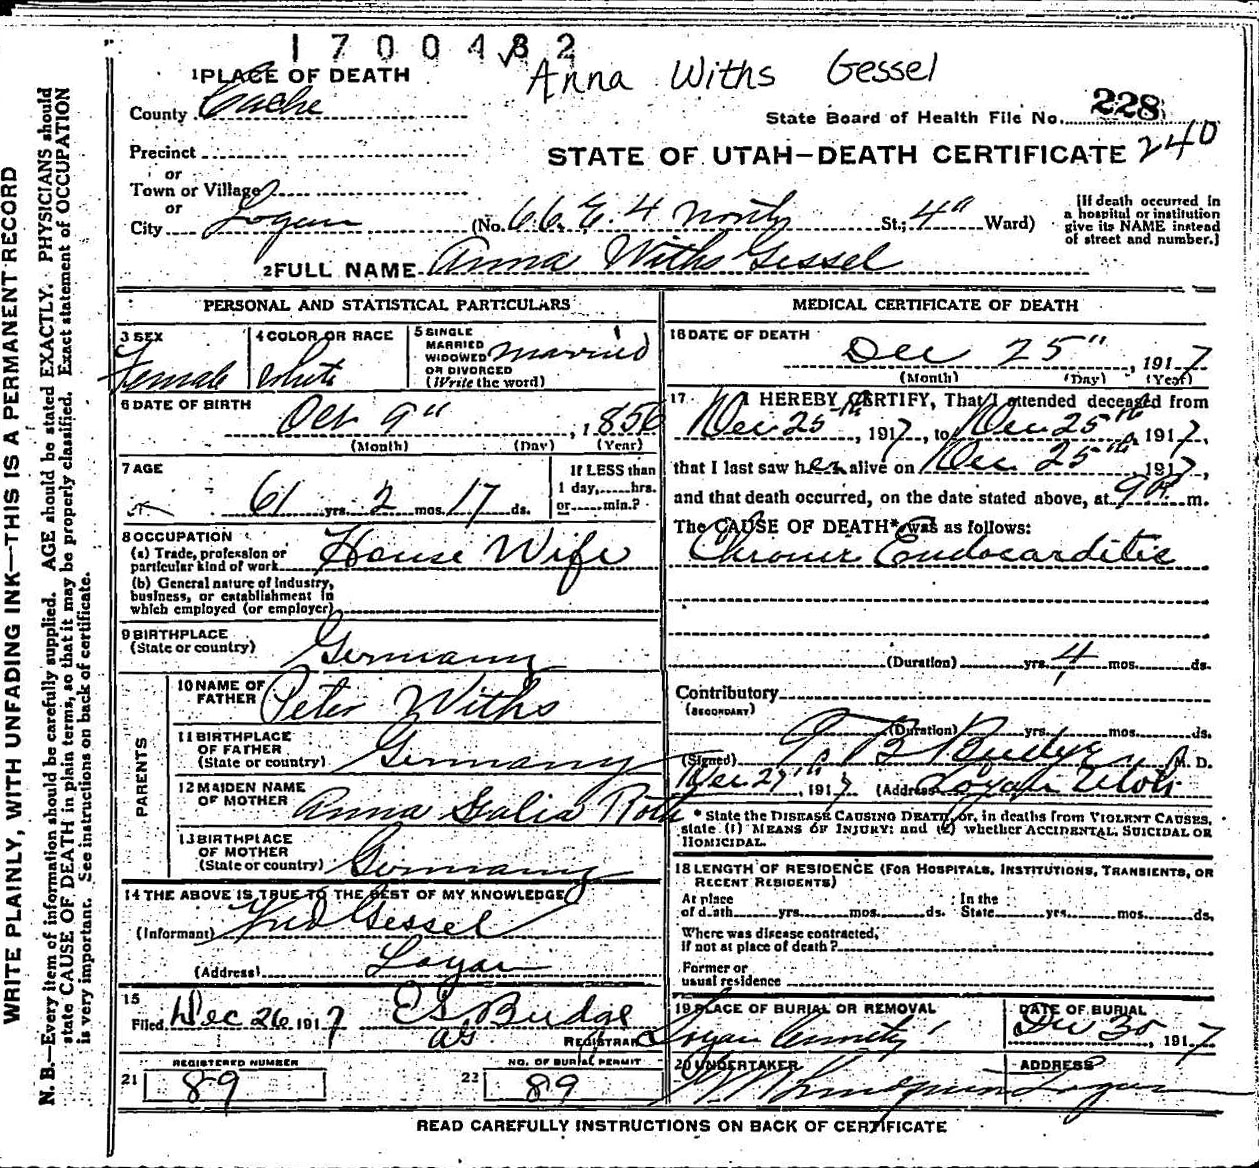 1700482
Anna Withs Gessel
1 PLACE OF DEATH
County Cache
State Board of Health File No. 228
240
STATE OF UTAH—DEATH CERTIFICATE
Precinct
or
Town or Village
or
City Logan (No. 66 E. 4 North St; 4" Ward)
[If death occurred in a hospital or institution give its NAME instead of street and number.]
2 FULL NAME Anna Withs Gessel
PERSONAL AND STATISTICAL PARTICULARS
3 SEX Female
4 COLOR OR RACE White
5 SINGLE MARRIED WIDOWED OR DIVORCED (Write the word) married
6 DATE OF BIRTH Oct 9", 1856
(Month) (Day) (Year)
7 AGE 61 yrs. 2 mos. 17 ds.
If LESS than 1 day, hrs. or min.?
8 OCCUPATION
(a) Trade, profession or particular kind of work House Wife
(b) General nature of industry, business, or establishment in which employed (or employer)
9 BIRTHPLACE (State or country) Germany
PARENTS
10 NAME OF FATHER Peter Withs
11 BIRTHPLACE OF FATHER (State or country) Germany
12 MAIDEN NAME OF MOTHER Anna Roth
13 BIRTHPLACE OF MOTHER (State or country) Germany
14 THE ABOVE IS TRUE TO THE BEST OF MY KNOWLEDGE
(Informant) Fred Gessel
(Address) Logan
15 Filed Dec 26 1917 Budge
REGISTRAR
REGISTERED NUMBER
21 89
NO. OF BURIAL PERMIT
22 89
MEDICAL CERTIFICATE OF DEATH
16 DATE OF DEATH Dec 25", 1917
(Month) (Day) (Year)
17 I HEREBY CERTIFY, That I attended deceased from
Dec 25th, 1917, to Dec 25th, 1917,
that I last saw her alive on Dec 25th, 1917,
and that death occurred, on the date stated above, at 9 m.
The CAUSE OF DEATH* was as follows:
Chronic Endocarditis
(Duration) yrs. 4 mos. ds.
Contributory
(SECONDARY)
(Duration) yrs. mos. ds.
(Signed) B Budge M. D.
Dec 27th, 1917 (Address) Logan Utah
* State the DISEASE CAUSING DEATH, or, in deaths from VIOLENT CAUSES, state (1) MEANS OF INJURY; and (2) whether ACCIDENTAL, SUICIDAL OR HOMICIDAL.
18 LENGTH OF RESIDENCE (FOR HOSPITALS, INSTITUTIONS, TRANSIENTS, OR RECENT RESIDENTS)
At place of death yrs. mos. ds. In the State yrs. mos. ds.
Where was disease contracted, if not at place of death?
Former or usual residence
19 PLACE OF BURIAL OR REMOVAL Logan
DATE OF BURIAL Dec 30, 1917
20 UNDERTAKER
ADDRESS Logan
READ CAREFULLY INSTRUCTIONS ON BACK OF CERTIFICATE
WRITE PLAINLY, WITH UNFADING INK—THIS IS A PERMANENT RECORD
N. B.—Every item of information should be carefully supplied. AGE should be stated EXACTLY. PHYSICIANS should
state CAUSE OF DEATH in plain terms, so that it may be properly classified. Exact statement of OCCUPATION
is very important. See instructions on back of certificate.